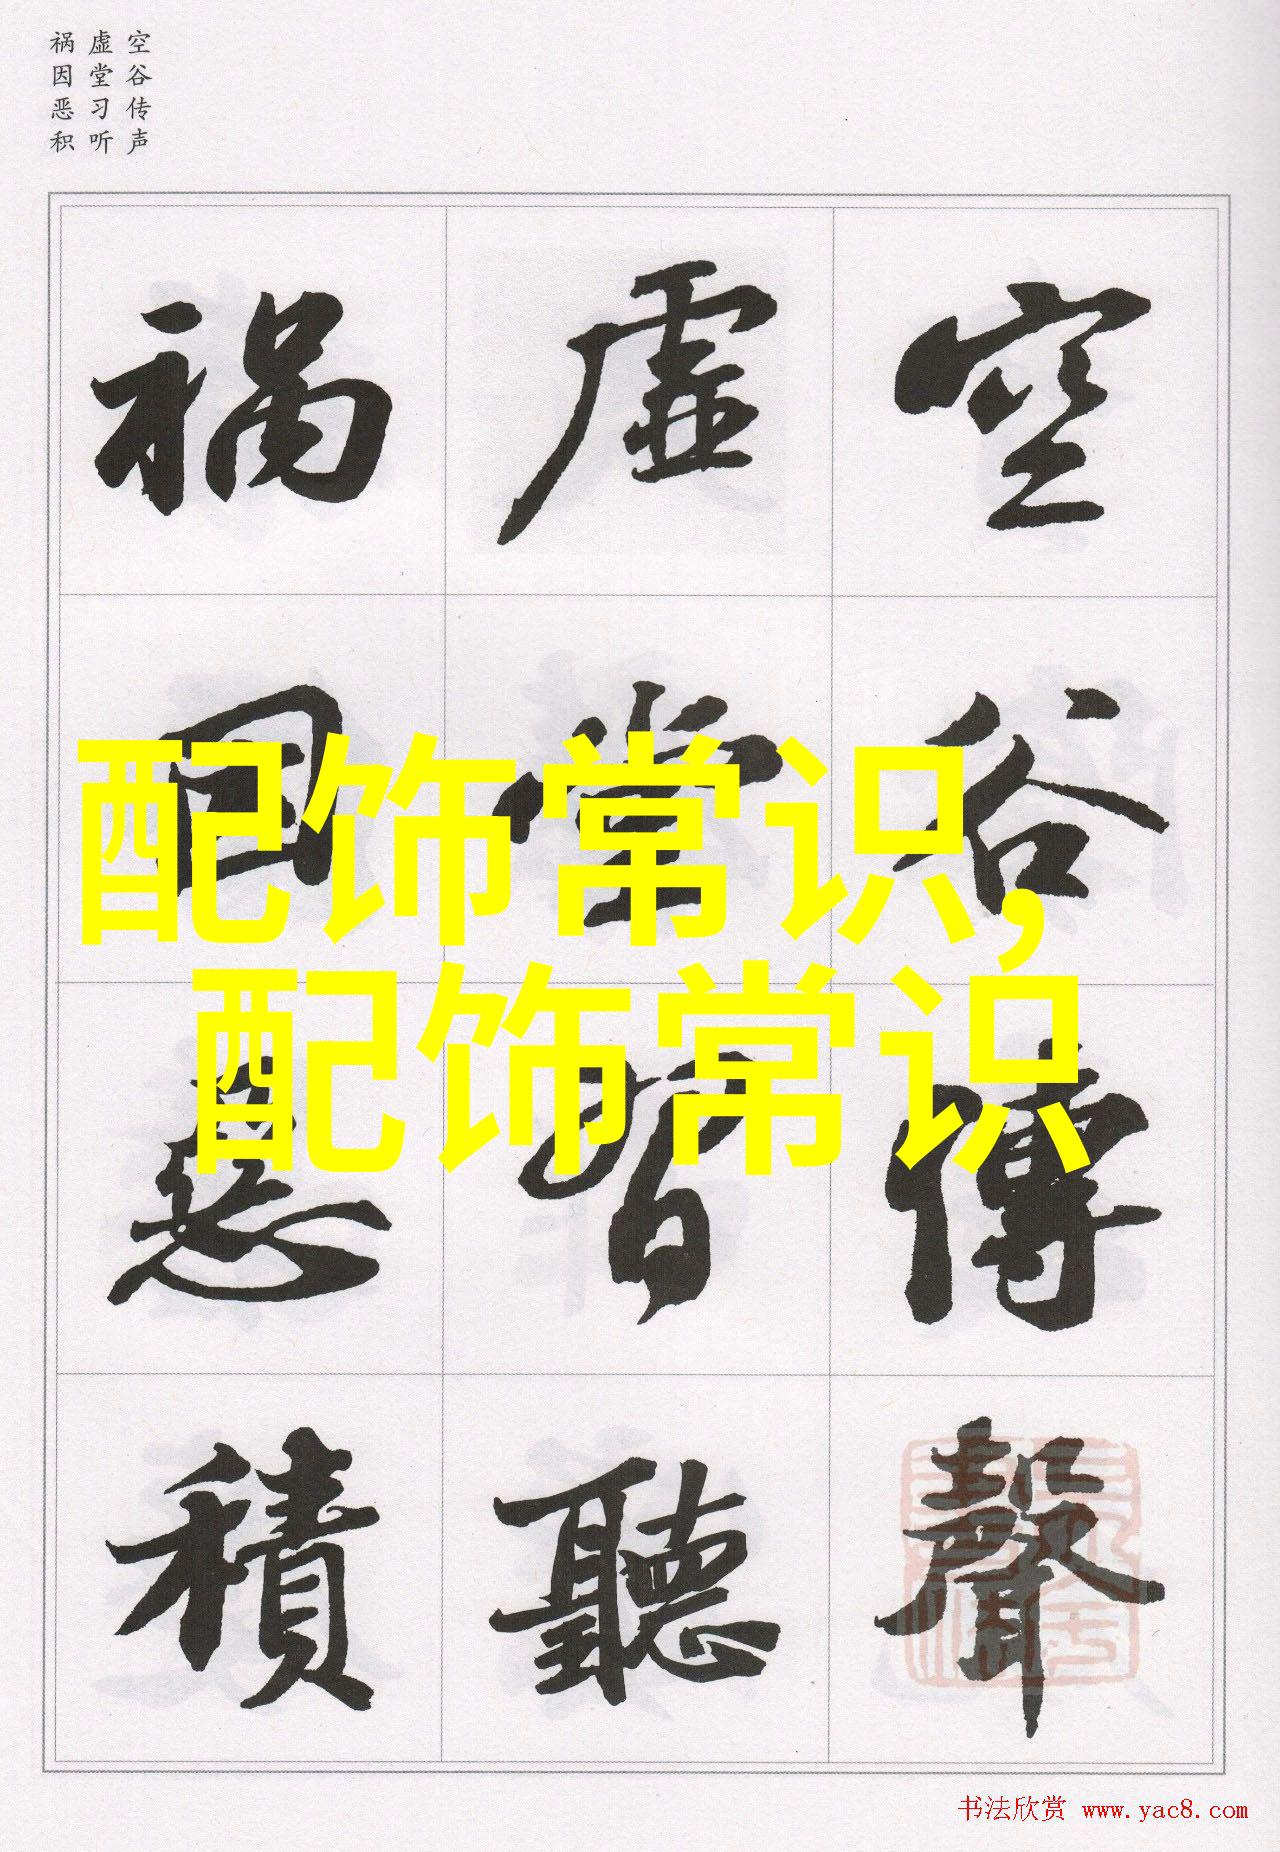 空谷传声
虚堂习听
祸因恶积
空谷傳聲
虚堂習聽
禍因惡積
配饰常识,
配饰常识
书法欣赏 www.yac8.com